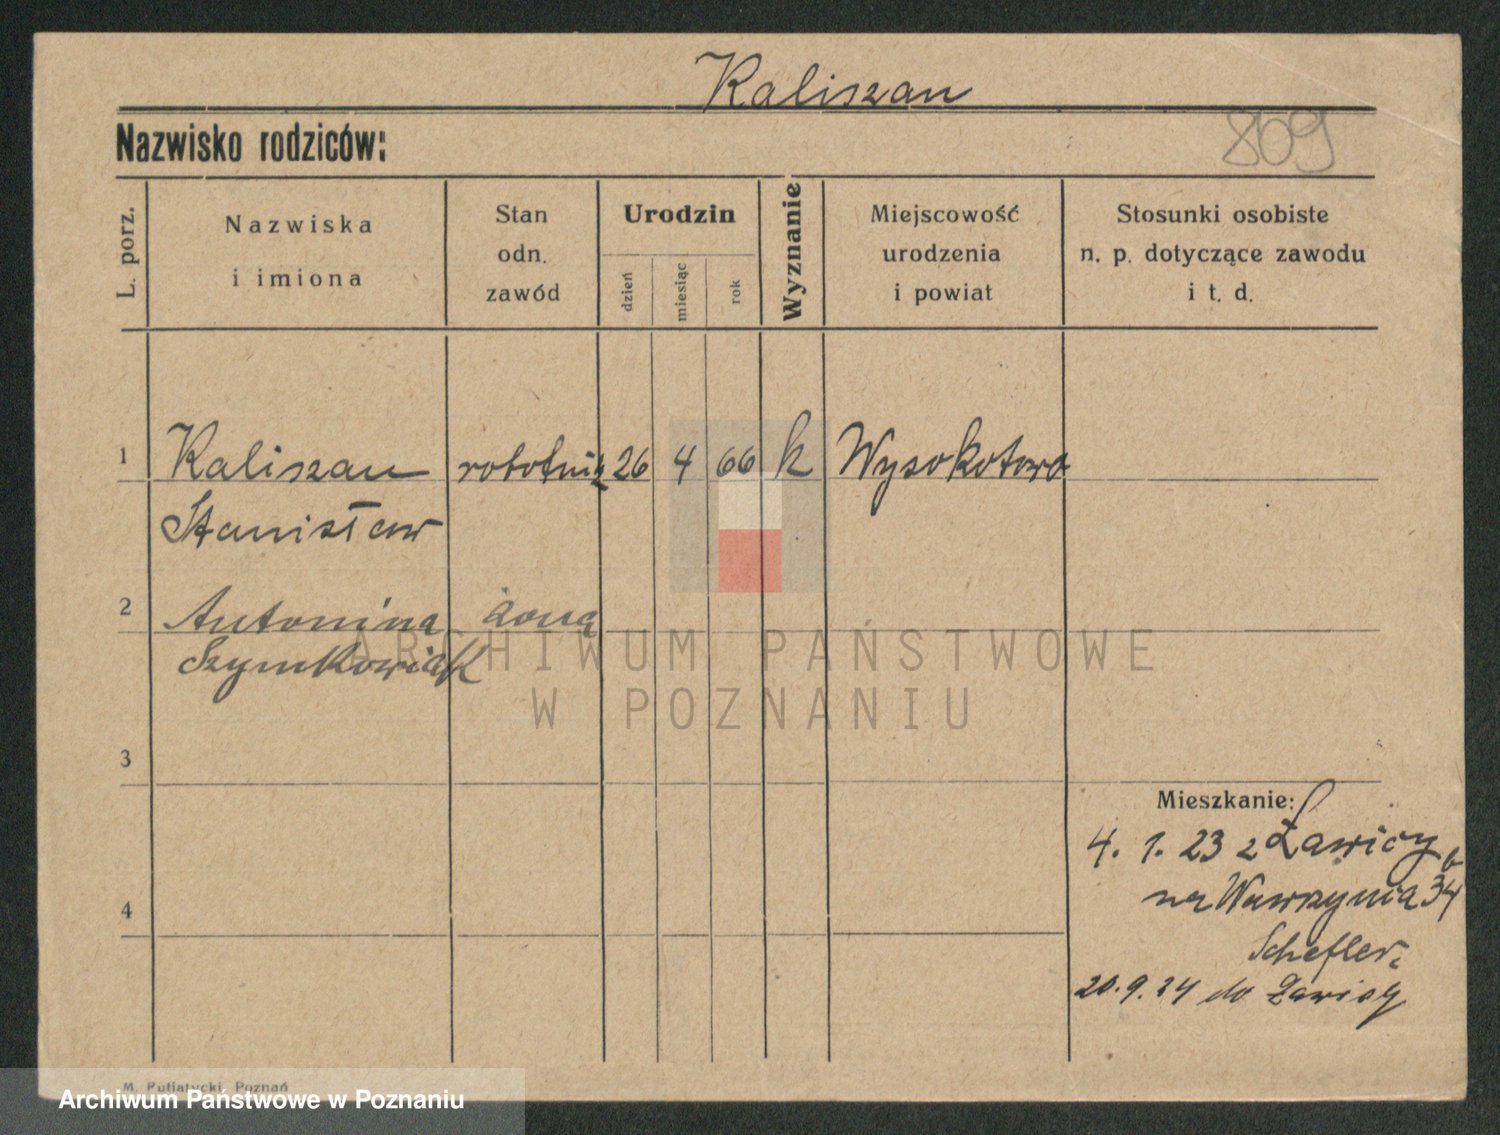 Kaliszan
Nazwisko rodziców:
869
L. porz.
Nazwiska
i imiona
Stan
odn.
zawód
Urodzin
dzień
miesiąc
rok
Wyznanie
Miejscowość
urodzenia
i powiat
Stosunki osobiste
n. p. dotyczące zawodu
i t. d.
1 Kaliszan robotnik 26 4 66 k Wysokotowo
Stanisław
2 Antonina żona
Szymkowiak
ARCHIWUM PAŃSTWOWE
W POZNANIU
3
Mieszkanie:
4. 1. 23 z Ławicy
na Wawrzynia 34
4
Schefler
20.9.24 do Ławicy
M. Putiatycki, Poznań
Archiwum Państwowe w Poznaniu